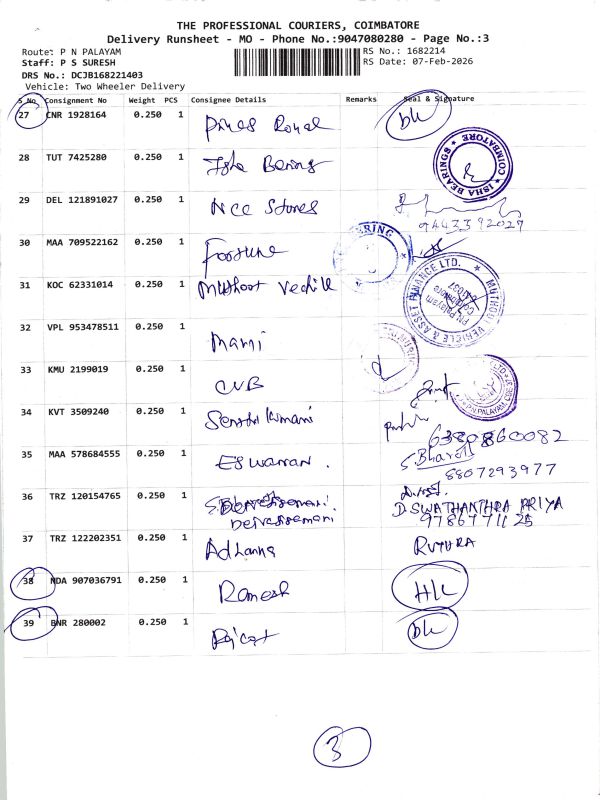 THE PROFESSIONAL COURIERS, COIMBATORE
Delivery Runsheet - MO - Phone No.:9047080280 - Page No.:3
Route: P N PALAYAM
RS No.: 1682214
Staff: P S SURESH
RS Date: 07-Feb-2026
DRS No.: DCJB168221403
Vehicle: Two Wheeler Delivery
S No. Consignment No Weight PCS Consignee Details Remarks Seal & Signature
27 CNR 1928164 0.250 1 Royal
28 TUT 7425280 0.250 1 Isha Bearings ISHA BEARINGS * COIMBATORE
29 DEL 121891027 0.250 1 Nce Stores
9443392027
30 MAA 709522162 0.250 1 Foortune
31 KOC 62331014 0.250 1 Muthoot Vechile MUTHOOT VEHICLE & ASSET FINANCE LTD.
PN Palayam
Coimbatore
32 VPL 953478511 0.250 1 Mami
33 KMU 2199019 0.250 1 CUB
34 KVT 3509240 0.250 1 Senthil Kumani
6380860082
35 MAA 578684555 0.250 1 Eswaran. S. Bharath
8807293977
36 TRZ 120154765 0.250 1
D. SWATHANTHRA PRIYA
9786771125
37 TRZ 122202351 0.250 1 Adhanna RUTHRA
38 NDA 907036791 0.250 1 Ramesh
39 BNR 280002 0.250 1
3